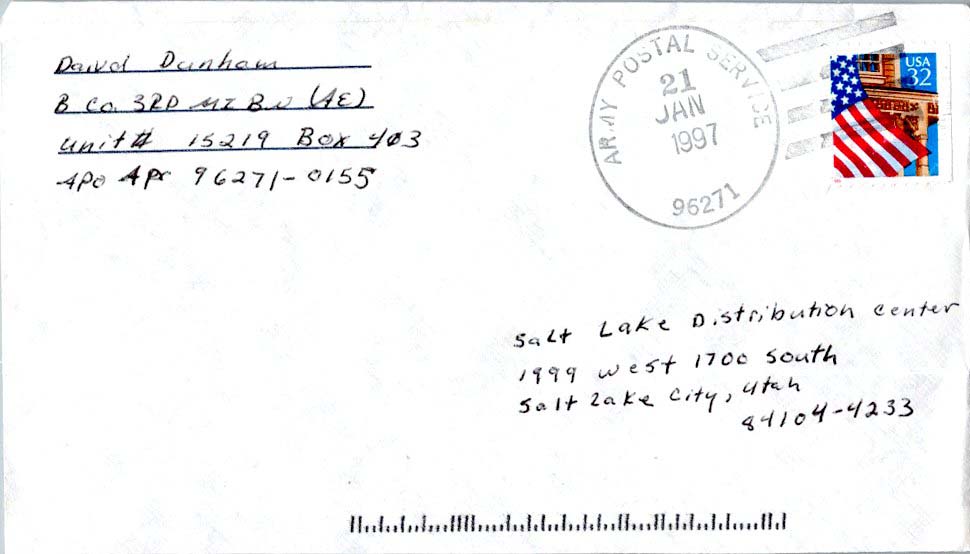 David Dunham
B Co. 3RD MI BN (AE)
Unit# 15219 Box 403
APO AP 96271-0155
ARMY POSTAL SERVICE
21
JAN
1997
96271
USA
32
Salt Lake Distribution Center
1999 West 1700 South
Salt Lake City, Utah
84104-4233